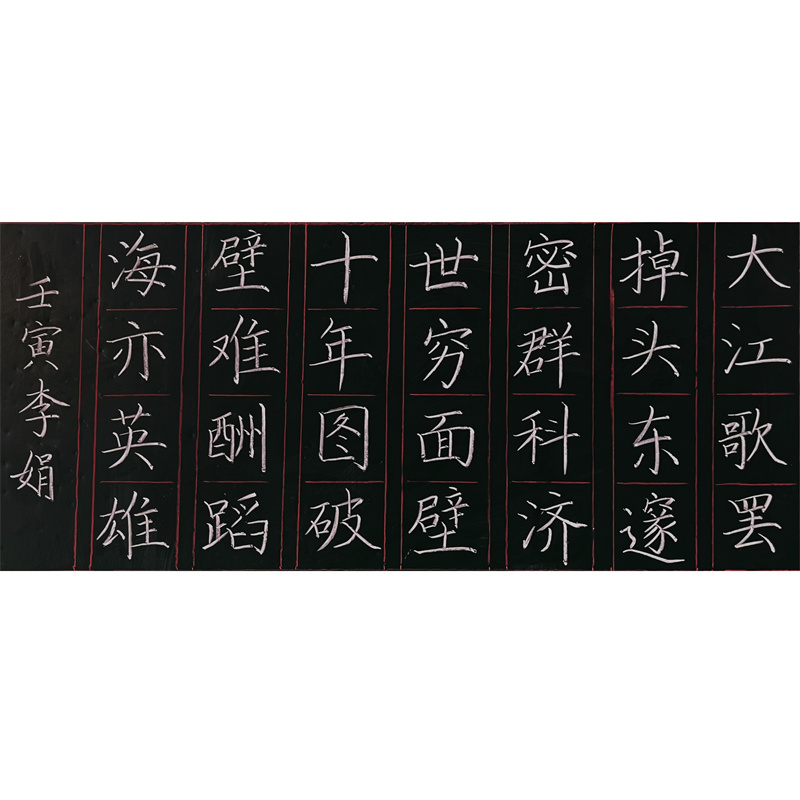 大江歌罢
掉头东邃
密群科济
世穷面壁
十年图破
壁难酬蹈
海亦英雄
壬寅李娟